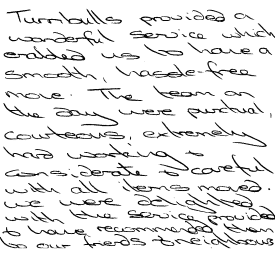 Turnbulls provided a
wonderful service which
enabled us to have a
smooth, hassle-free
move. The team on
the day were punctual,
courteous, extremely
hard working &
considerate & careful
with all items moved.
We were delighted
with the service provided
& have recommended them
to our friends & neighbours